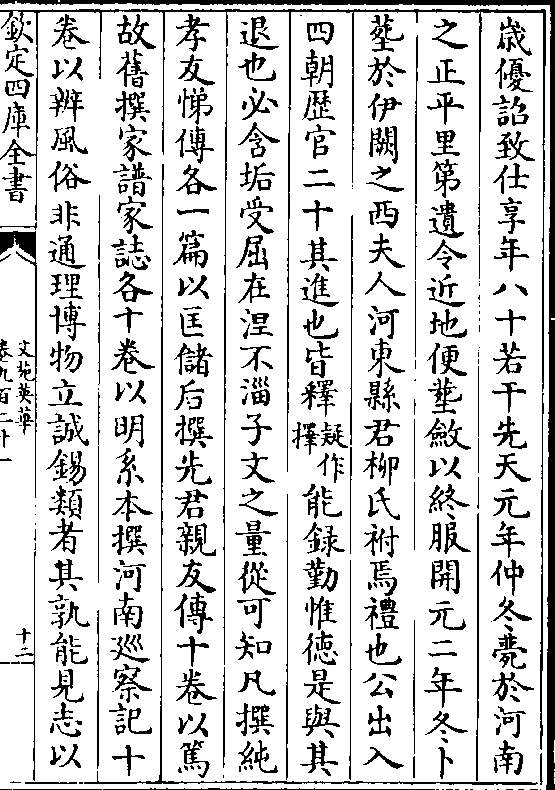 歳優詔致仕享年八十若干先天元年仲冬薨於河南
之正平里第遺令近地便塟斂以終服開元二年冬卜
塟於伊闕之西夫人河東縣君柳氏祔焉禮也公出入
四朝歴官二十其進也皆釋疑作擇能録勤惟徳是與其
退也必含垢受屈在涅不淄子文之量從可知凡撰純
孝友悌傳各一篇以匡儲后撰先君親友傳十卷以篤
故舊撰家譜家誌各十卷以明系本撰河南廵察記十
卷以辨風俗非通理博物立誠錫類者其孰能見志以
欽定四庫全書
文苑英華
卷九百二十一
十二